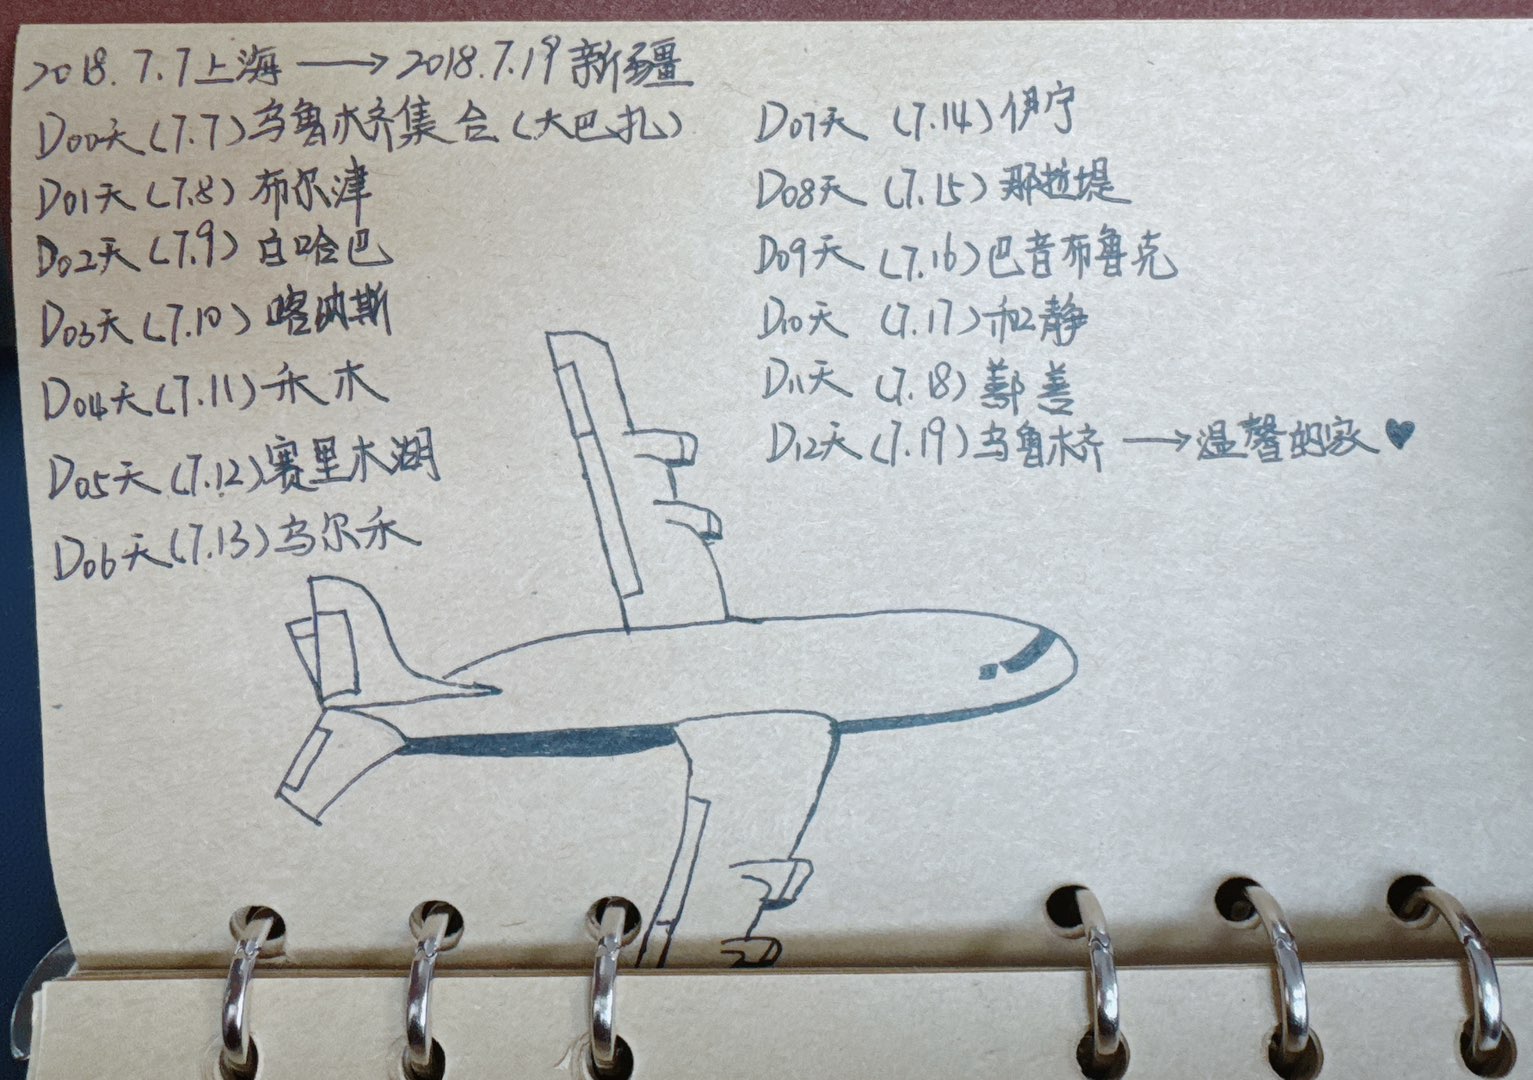 2018.7.7上海→2018.7.19新疆
D00天(7.7)乌鲁木齐集合(大巴扎)
D01天(7.8)布尔津
D02天(7.9)白哈巴
D03天(7.10)喀纳斯
D04天(7.11)禾木
D05天(7.12)赛里木湖
D06天(7.13)乌尔禾
D07天(7.14)伊宁
D08天(7.15)那拉堤
D09天(7.16)巴音布鲁克
D10天(7.17)和静
D11天(7.18)鄯善
D12天(7.19)乌鲁木齐→温馨的家♥